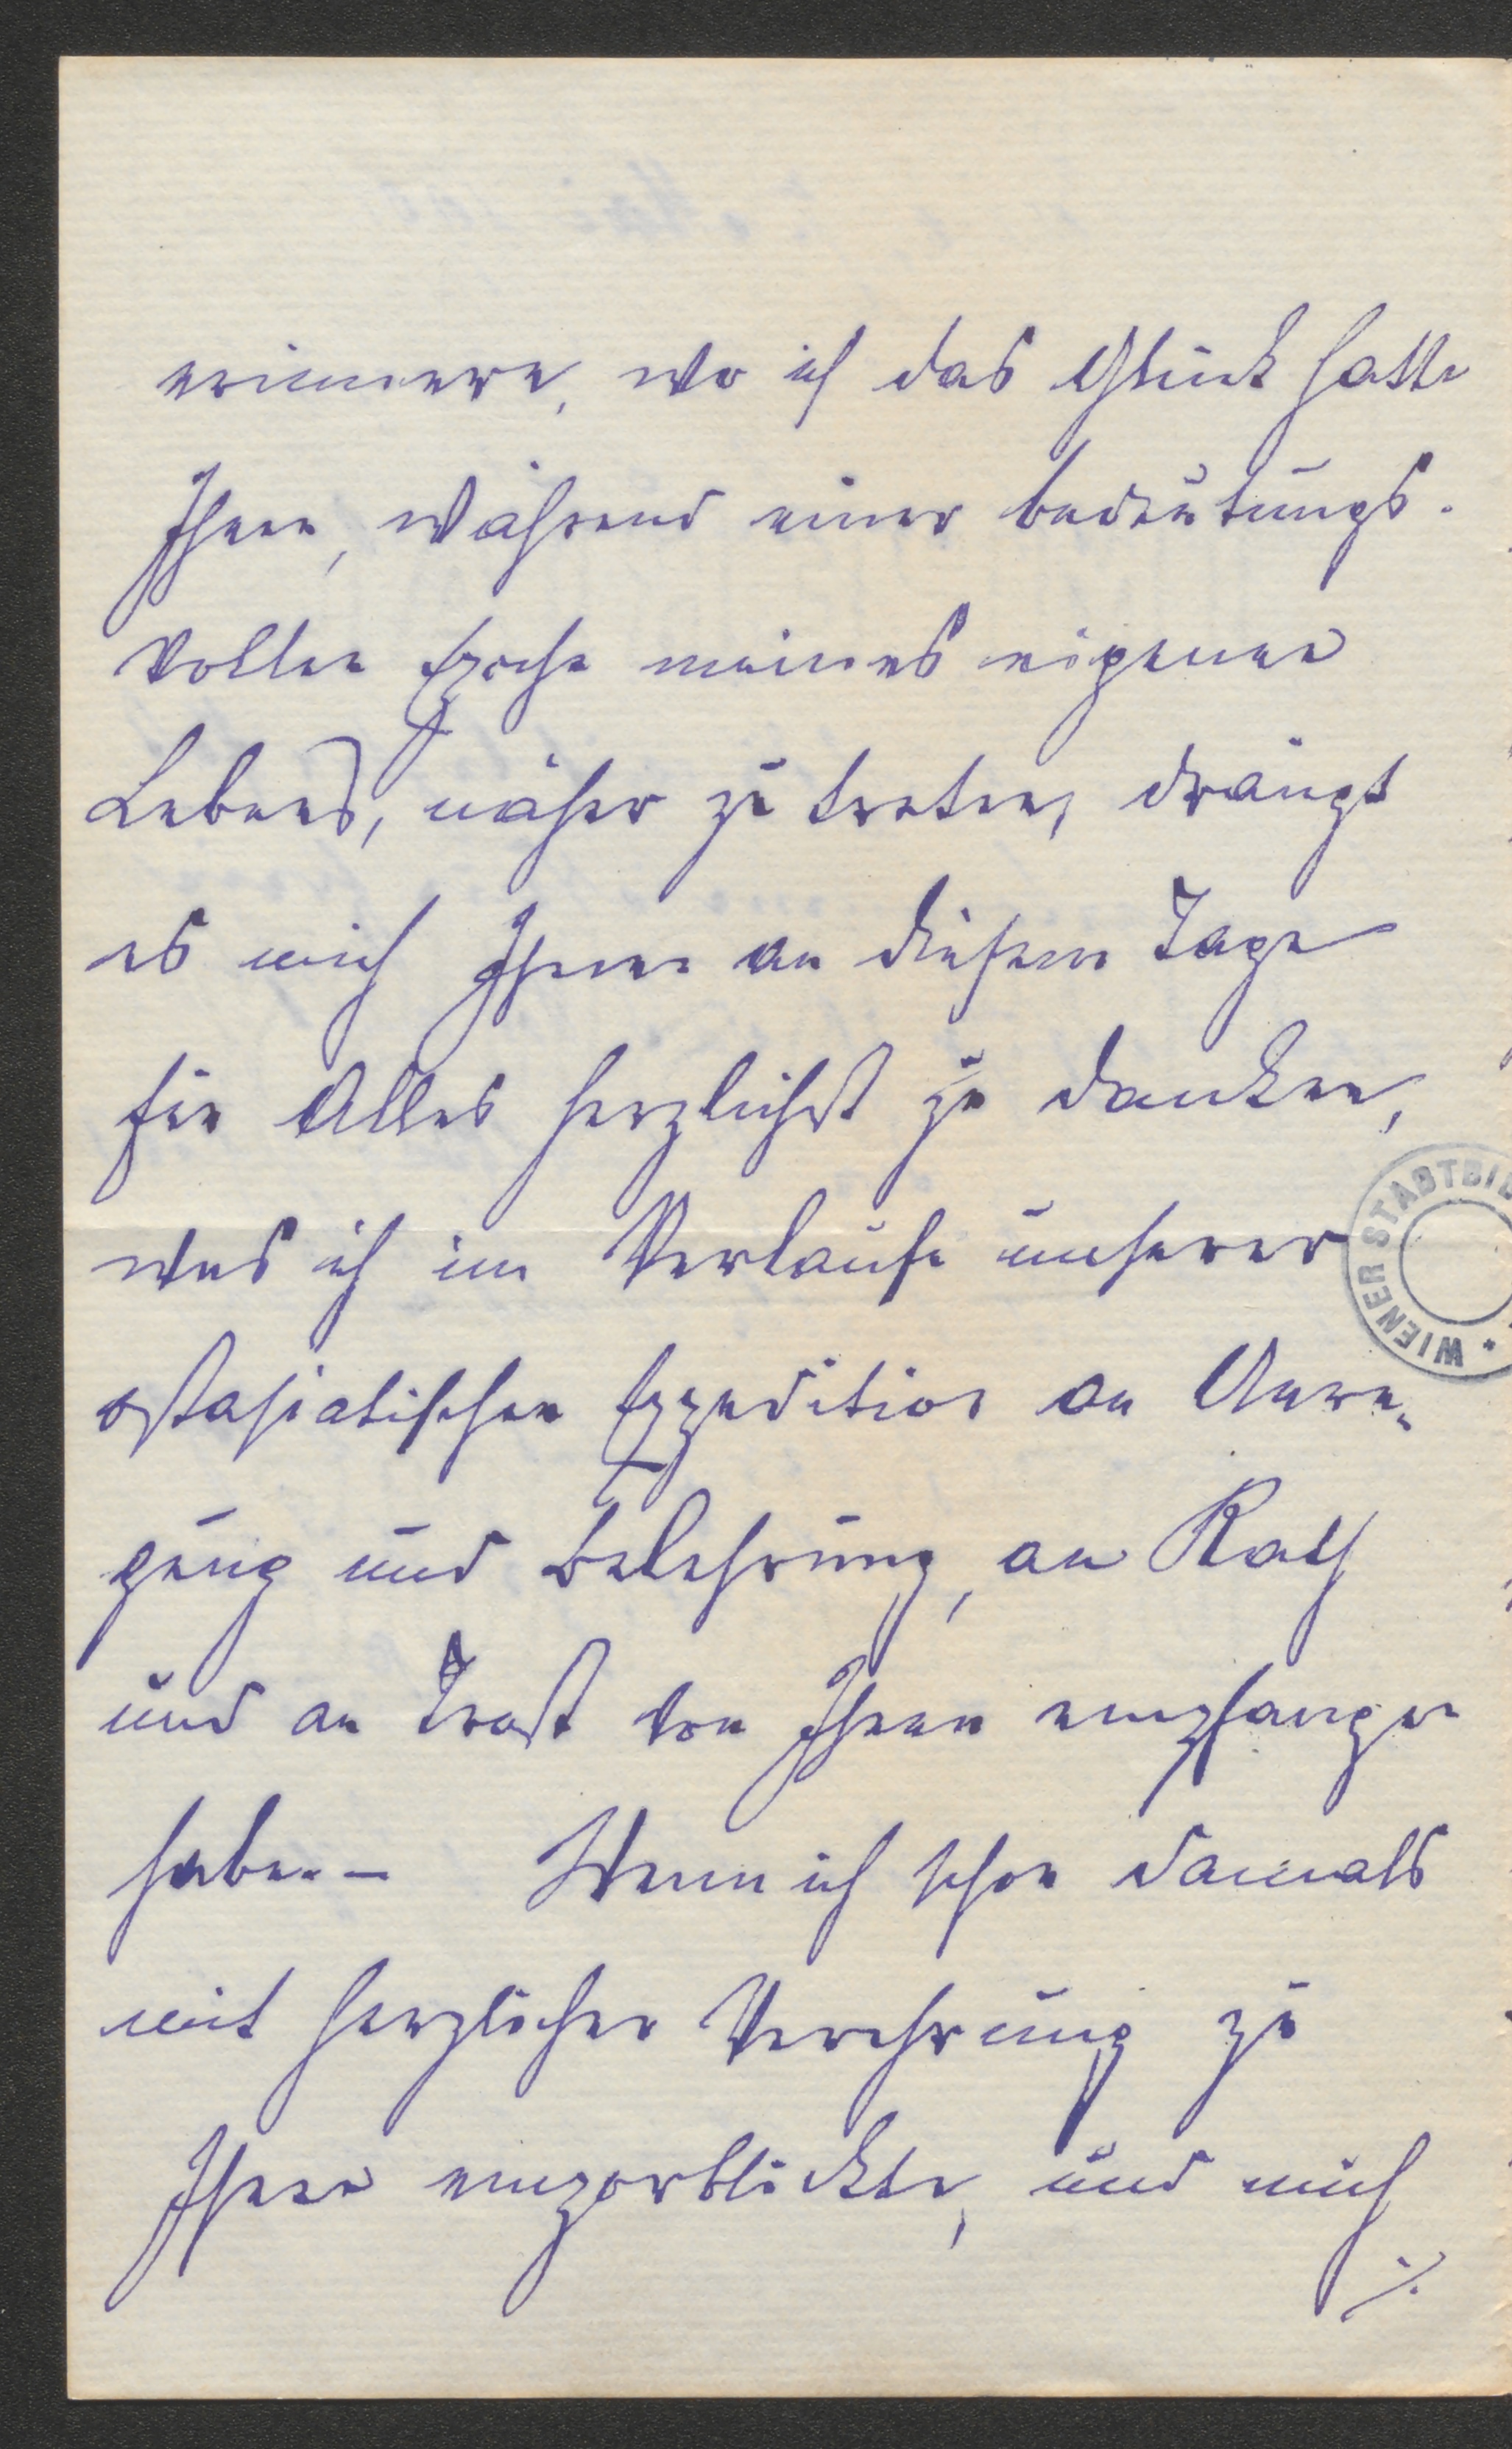 erinnere, wo ich das Glück hatte
Ihnen, während einer bedeutungs-
vollen Epoche meines eigenen
Lebens, näher zu treten, drängt
es mich Ihnen an diesem Tage
für Alles herzlichst zu danken,
was ich im Verlaufe unserer
ostasiatischen Expedition an Anre-
gung und Belehrung, an Rath
und an Trost von Ihnen empfangen
habe. – Wenn ich schon damals
mit herzlicher Verehrung zu
Ihnen emporblickte, und mich
./.
WIENER STADTBI